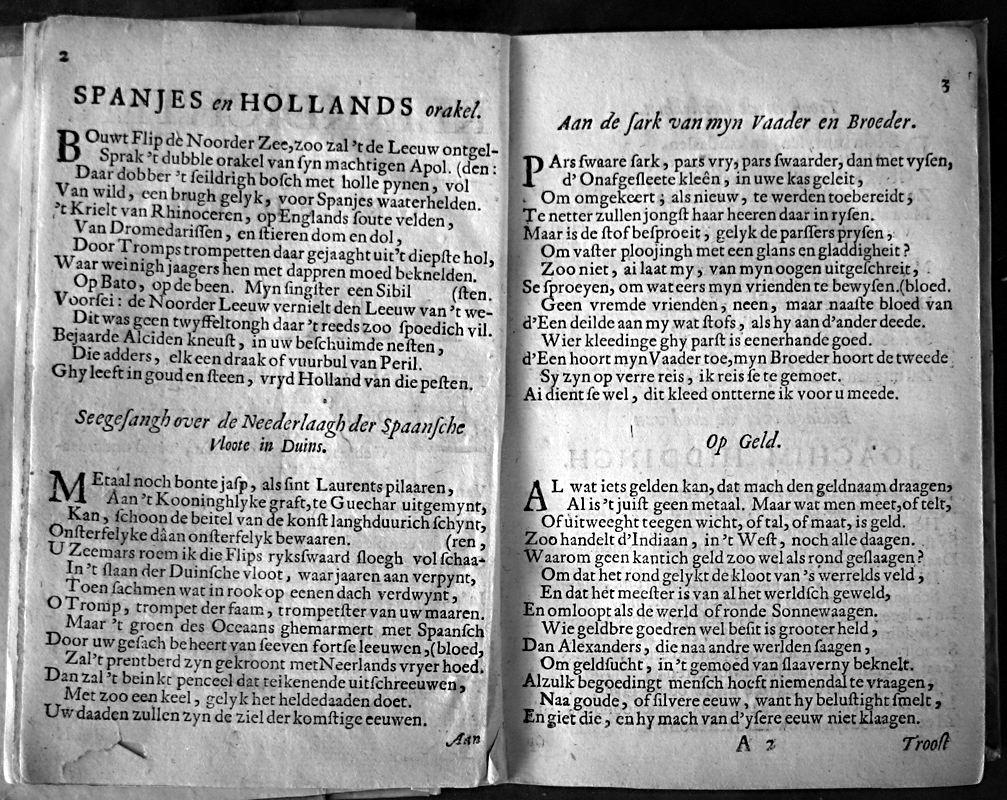 2
SPANJES en HOLLANDS orakel.
BOuwt Flip de Noorder Zee, zoo zal 't de Leeuw ontgel-
Sprak 't dubble orakel van ſyn machtigen Apol. (den:
Daar dobber 't ſeildrigh boſch met holle pynen, vol
Van wild, een brugh gelyk, voor Spanjes waaterhelden.
't Krielt van Rhinoceren, op Englands ſoute velden,
Van Dromedariſſen, en ſtieren dom en dol,
Door Tromps trompetten daar gejaaght uit't diepſte hol,
Waar weinigh jaagers hen met dappren moed beknelden.
Op Bato, op de been. Myn ſingſter een Sibil (ſten.
Voorſei: de Noorder Leeuw vernielt den Leeuw van 't we-
Dit was geen twyffeltongh daar 't reeds zoo ſpoedich vil.
Bejaarde Alciden kneuſt, in uw beſchuimde neſten,
Die adders, elk een draak of vuurbul van Peril.
Ghy leeft in goud en ſteen, vryd Holland van die peſten.
Seegeſangh over de Neederlaagh der Spaanſche
Vloote in Duins.
MEtaal noch bonte jaſp, als ſint Laurents pilaaren,
Aan 't Kooninghlyke graft, te Guechar uitgemynt,
Kan, ſchoon de beitel van de konſt langhduurich ſchynt,
Onſterfelyke dâan onſterfelyk bewaaren. (ren,
U Zeemars roem ik die Flips ryksſwaard ſloegh vol ſchaa-
In't ſlaan der Duinſche vloot, waar jaaren aan verpynt,
Toen ſachmen wat in rook op eenen dach verdwynt,
O Tromp, trompet der faam, trompetſter van uw maaren.
Maar 't groen des Oceaans ghemarmert met Spaanſch
Door uw geſach beheert van ſeeven fortſe leeuwen, (bloed,
Zal't prentberd zyn gekroont met Neerlands vryer hoed.
Dan zal 't beinkt penceel dat teikenende uitſchreeuwen,
Met zoo een keel, gelyk het heldedaaden doet.
Uw daaden zullen zyn de ziel der komſtige eeuwen.
Aan
3
Aan de ſark van myn Vaader en Broeder.
PArs ſwaare ſark, pars vry, pars ſwaarder, dan met vyſen,
d' Onafgeſleete kleên, in uwe kas geleit,
Om omgekeert; als nieuw, te werden toebereidt;
Te netter zullen jongſt haar heeren daar in ryſen.
Maar is de ſtof beſproeit, gelyk de parſſers pryſen,
Om vaſter ploojingh met een glans en gladdigheit?
Zoo niet, ai laat my, van myn oogen uitgeſchreit,
Se ſproeyen, om wat eers myn vrienden te bewyſen. (bloed.
Geen vremde vrienden, neen, maar naaſte bloed van
d'Een deilde aan my wat ſtofs, als hy aan d'ander deede.
Wier kleedinge ghy parſt is eenerhande goed.
d'Een hoort myn Vaader toe, myn Broeder hoort de tweede
Sy zyn op verre reis, ik reis ſe te gemoet.
Ai dient ſe wel, dit kleed ontterne ik voor u meede.
Op Geld.
AL wat iets gelden kan, dat mach den geldnaam draagen,
Al is 't juiſt geen metaal. Maar wat men meet, of telt,
Of uitweeght teegen wicht, of tal, of maat, is geld.
Zoo handelt d'Indiaan, in 't Weſt, noch alle daagen.
Waarom geen kantich geld zoo wel als rond geſlaagen?
Om dat het rond gelykt de kloot van 's werrelds veld;
En dat het meeſter is van al het werldſch geweld,
En omloopt als de werld of ronde Sonnewaagen.
Wie geldbre goedren wel beſit is grooter held,
Dan Alexanders, die naa andre werlden ſaagen,
Om geldſucht, in 't gemoed van ſlaaverny beknelt.
Alzulk begoedingt menſch hoeft niemendal te vraagen,
Naa goude, of ſilvere eeuw, want hy beluſtight ſmelt,
En giet die, en hy mach van d'yſere eeuw niet klaagen.
A 2 Trooſt